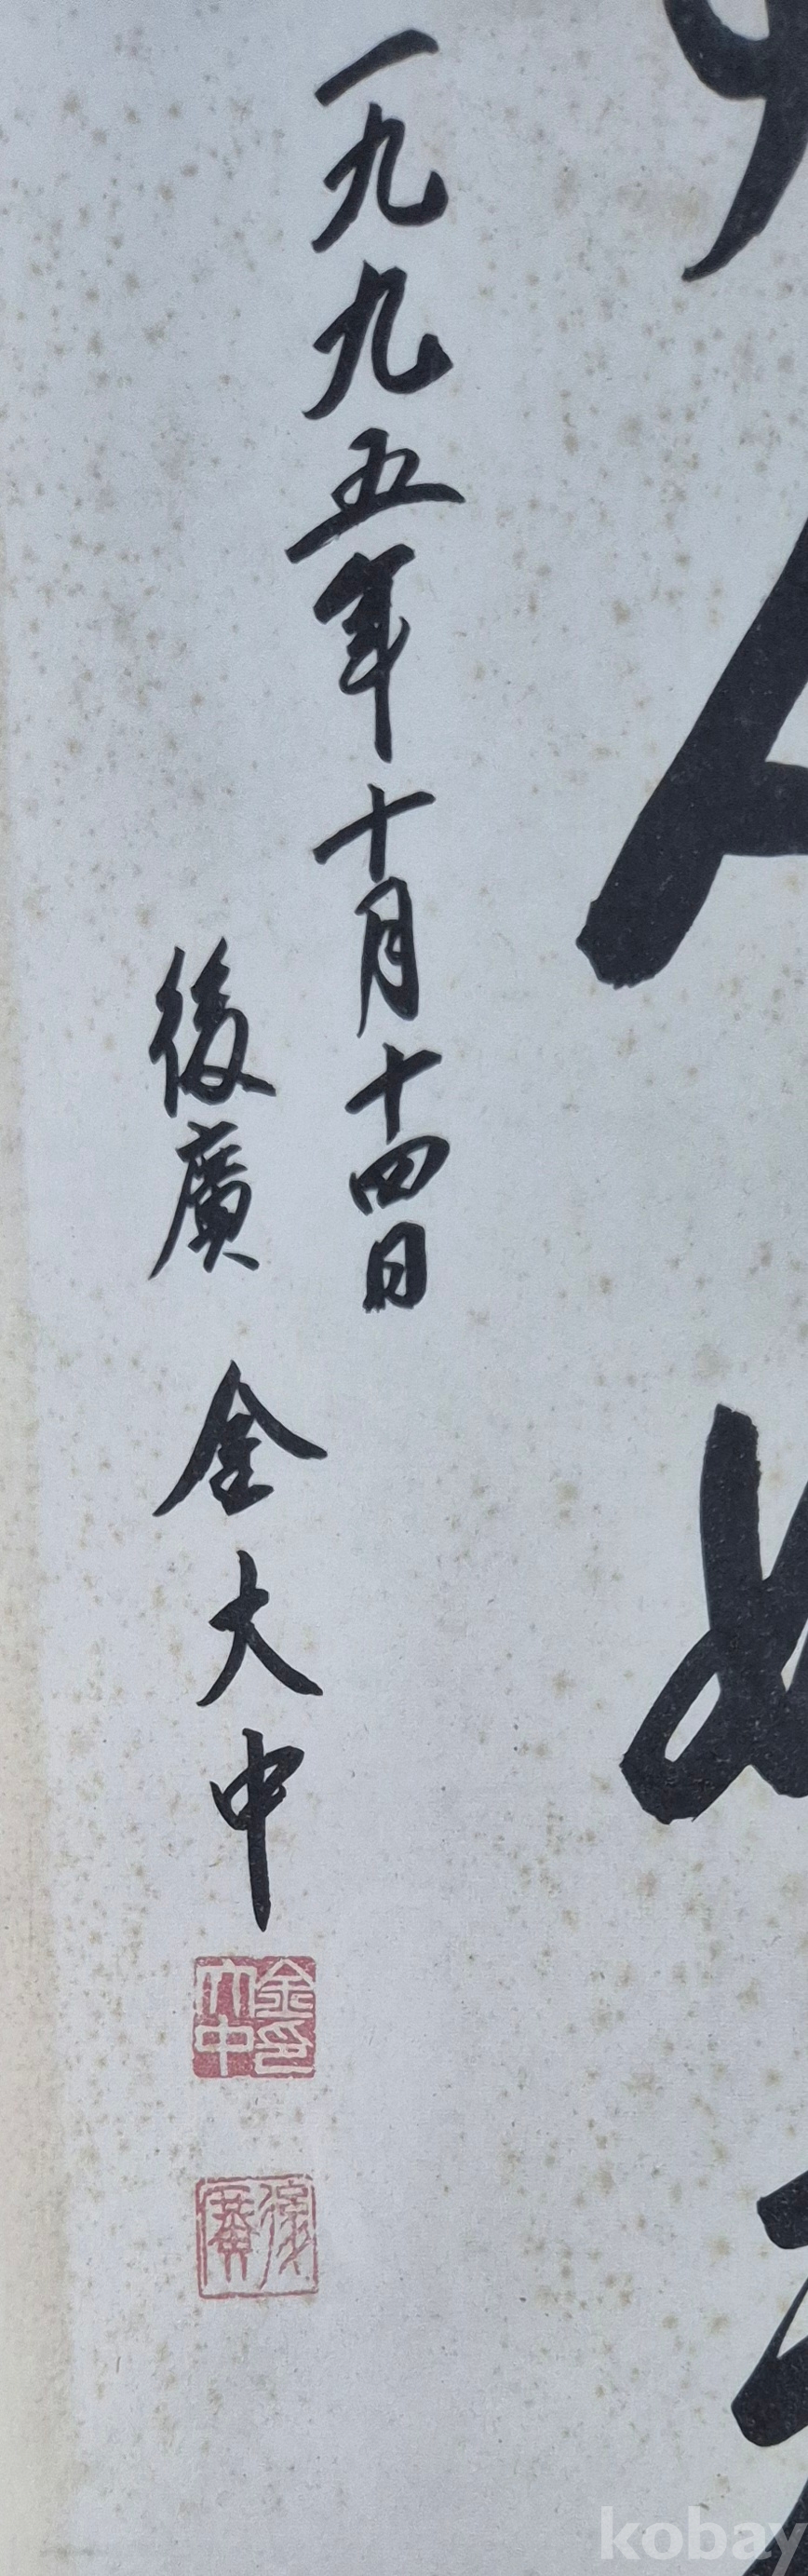 一九九五年十月十四日
後廣 金大中
金大中印
後廣
kobay